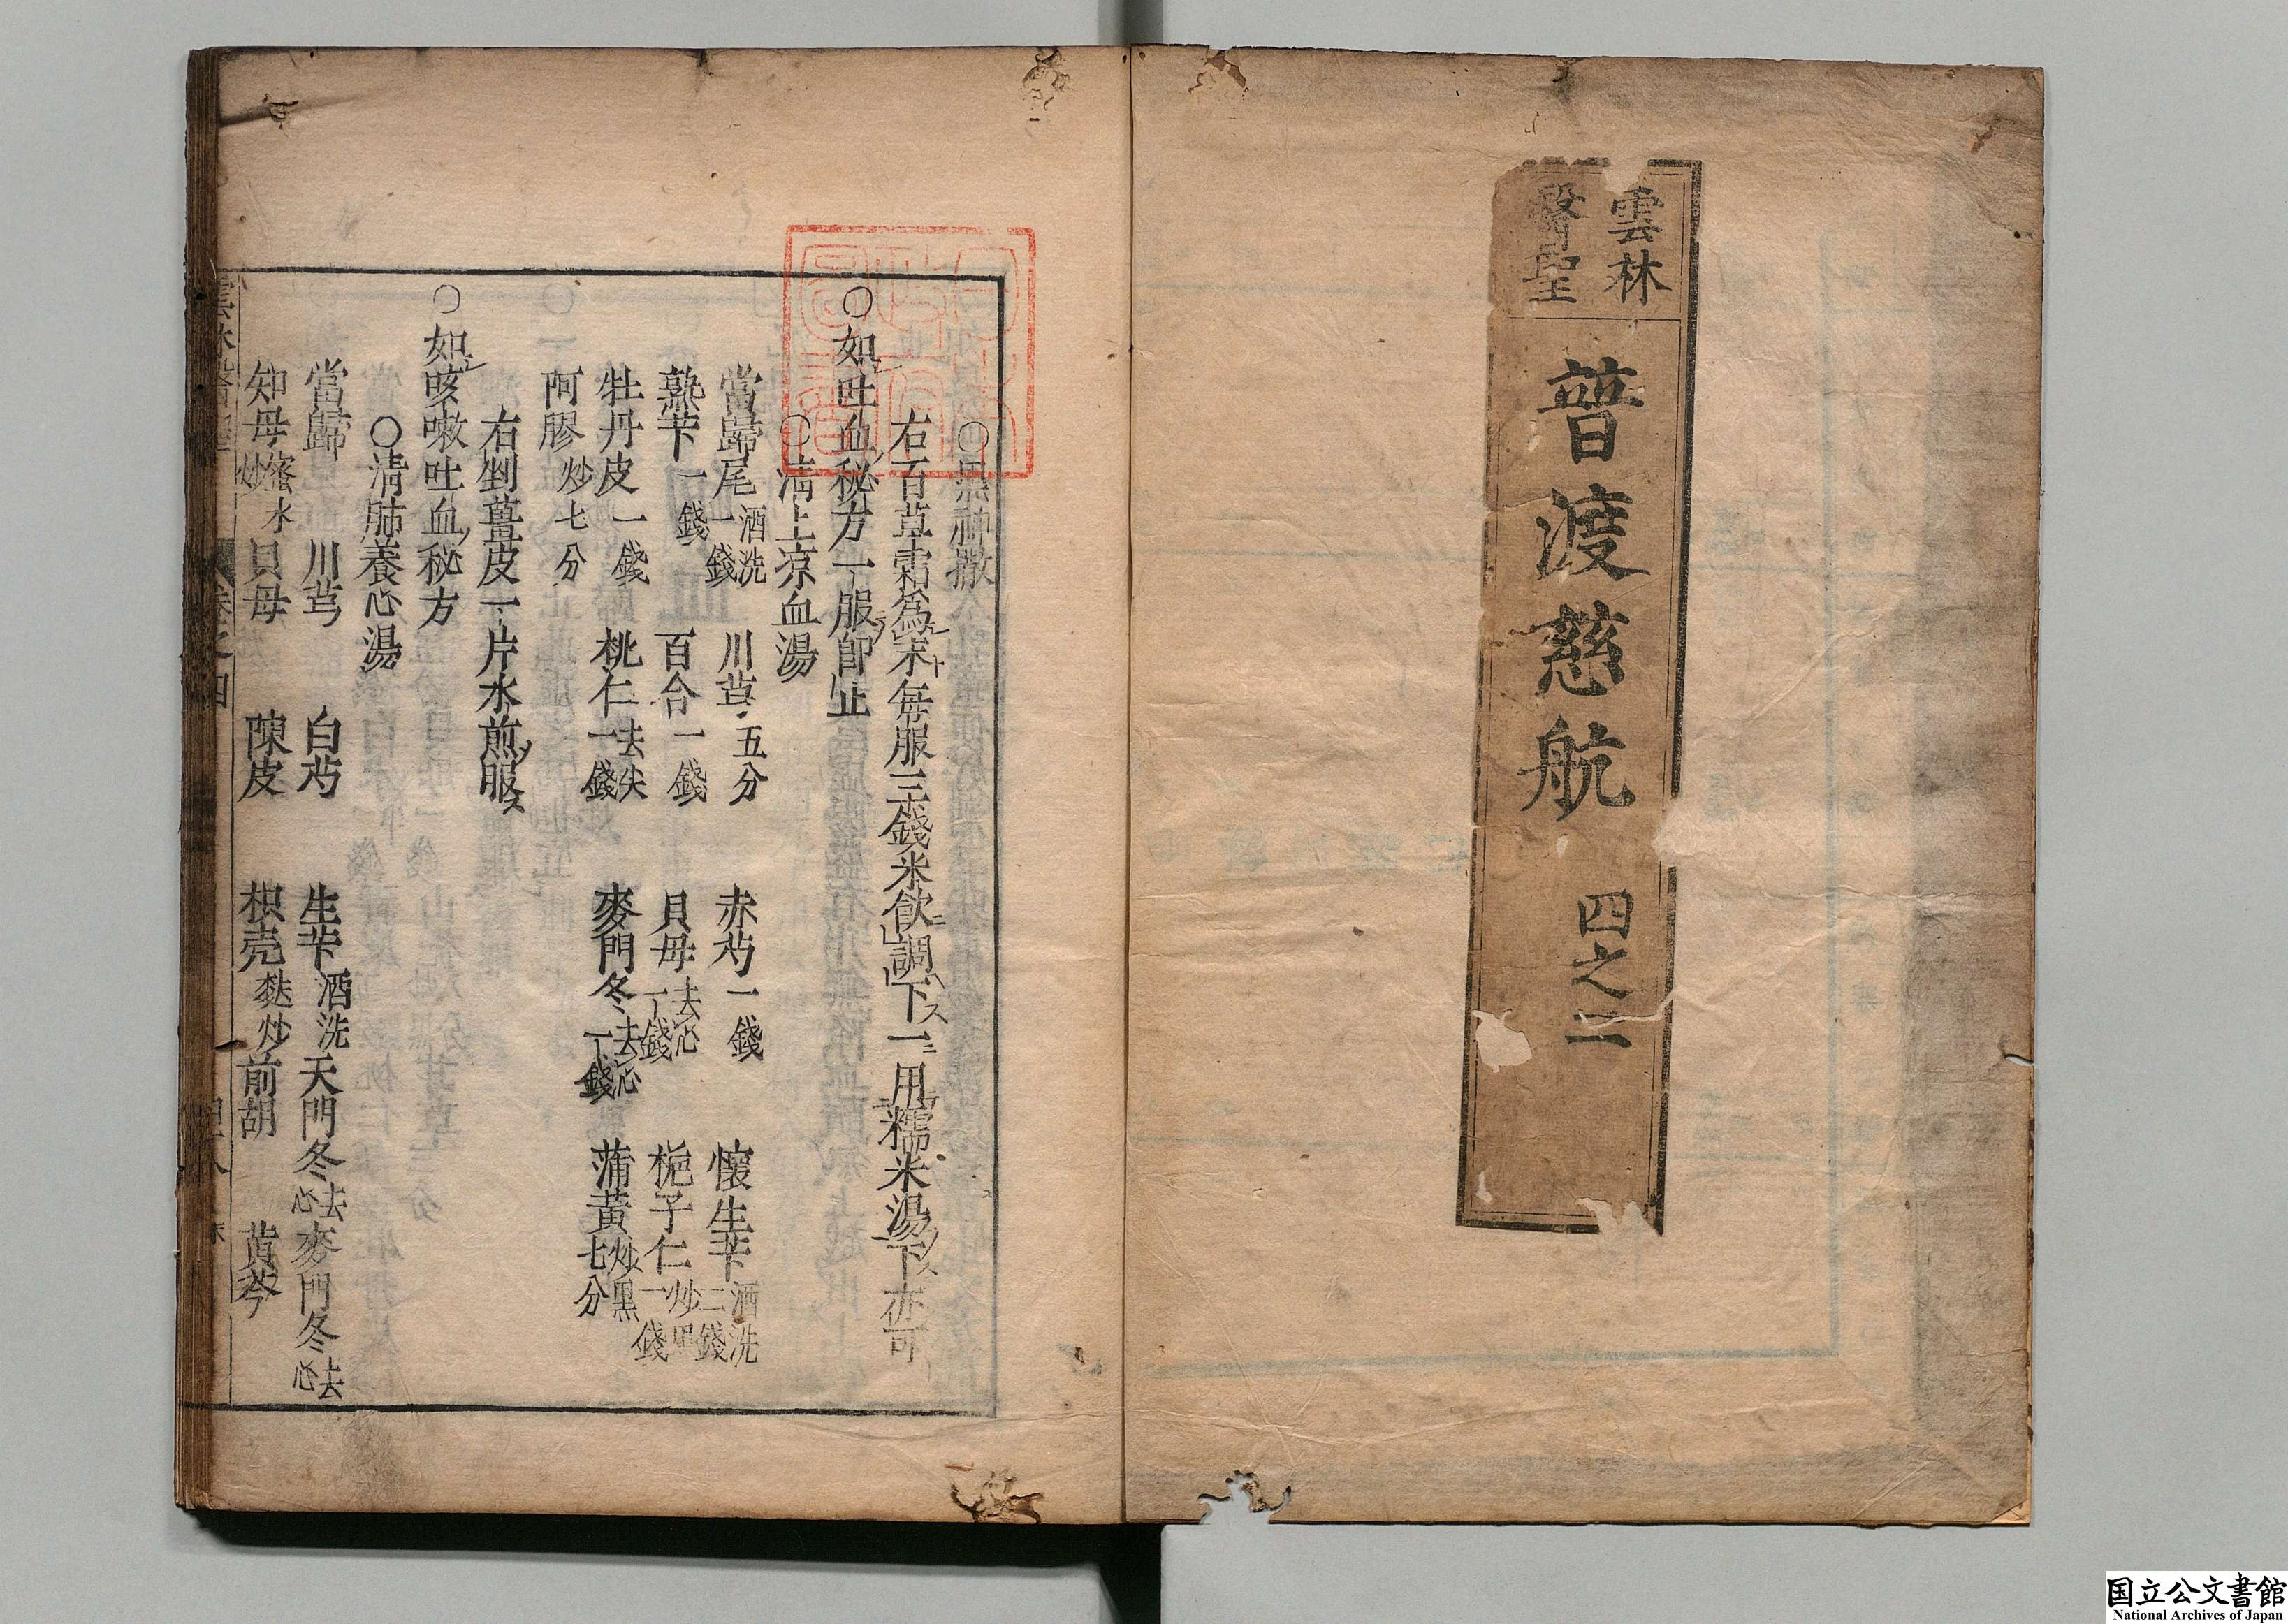 雲林
醫聖
普渡慈航 四之二
○黑神散
右百草霜爲末每服三錢米飲調下一用糯米湯下亦可
○如吐血秘方一服即止
○清上凉血湯
當歸尾酒洗一錢 川芎五分 赤芍一錢 懷生芐酒洗二錢
熟芐一錢 百合一錢 貝母去心一錢 梔子仁炒黑一錢
牡丹皮一錢 桃仁去尖一錢 麥門冬去心一錢 蒲黃炒黑七分
阿膠炒七分
右剉薑皮一片水煎服
○如咳嗽吐血秘方
○清肺養心湯
當歸 川芎 白芍 生芐酒洗 天門冬去心 麥門冬去心
知母蜜水炒 貝母 陳皮 枳壳麩炒 前胡 黃芩
雲林醫聖 卷之四
国立公文書館
National Archives of Japan